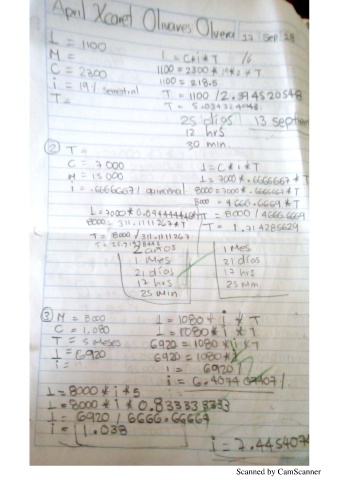 April Xcaret Olivares Olvera 12 Sep 18
I = 1100
M =
C = 2300
i = 19% semestral
T =
I = C*i*T
1100 = 2300*19*2*T
1100 = 218.5
T = 1100 /
T = 5.034324048
25 días
12 hrs
30 min.
13 septiem
② T =
C = 7000
M = 15000
i = .6666667 / quincenal
I = C*i*T
I = 7000 * .6666667 * T
8000 = 7000 * .6666667 * T
8000 = 4666.6669 * T
T = 8000 / 4666.6669
T = 1.714285629
I = 7000*
8000 = 311.1111267*T
T = 8000 / 311.1111267
2 años
1 Mes
21 días
17 hrs
25 min.
1 Mes
21 días
17 hrs
25 Min
③ M = 8000
C = 1,080
T = 5 Meses
I = 6920
i =
I = 1080 * i * T
I = 1080 * i * T
6920 = 1080 * i * T
6920 = 1080 *
i = 6920 /
i = 6.407407407 /
I = 8000 * i * 5
I = 8000 * i * 0.833333333
i = 6920 / 6666.66667
i = 1.038
i = 7.445407
Scanned by CamScanner